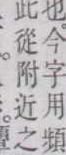 也。今字用頻
此從附近之